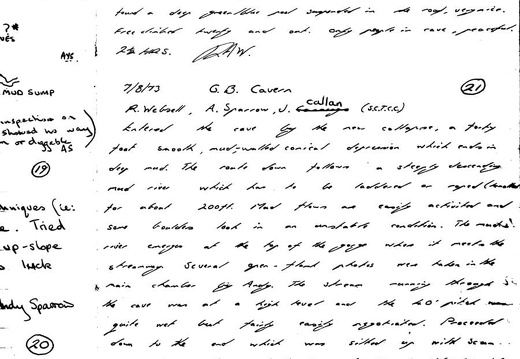 found a deep green/blue pool suspended in the roof, very nice.
Free climbed twenty and out. Only people in cave, peaceful.
2¾ HRS. RAW.
7/8/73 G.B. Cavern 21
R. Websell, A. Sparrow, J. Callan (S.C.T.C.C.)
Entered the cave by the new collapse, a forty
foot smooth, mud-walled conical depression which ends in
deep mud. The route down follows a steeply descending
mud river which has to be laddered or roped
for about 200ft. Mud flows are easily activated and
some boulders look in an unstable condition. The mud
river emerges at the top of the gorge where it meets the
streamway. Several open-flash photos were taken in the
main chamber by Andy. The stream running through
the cave was at a high level and the 40' pitch
quite wet but fairly easily negotiated. Proceeded
down to the end which was silted up with
AYS.
MUD SUMP
inspection on
showed no way
or diggable
AS
19
techniques (ie:
Tried
up-slope
luck
Andy Sparrow
20